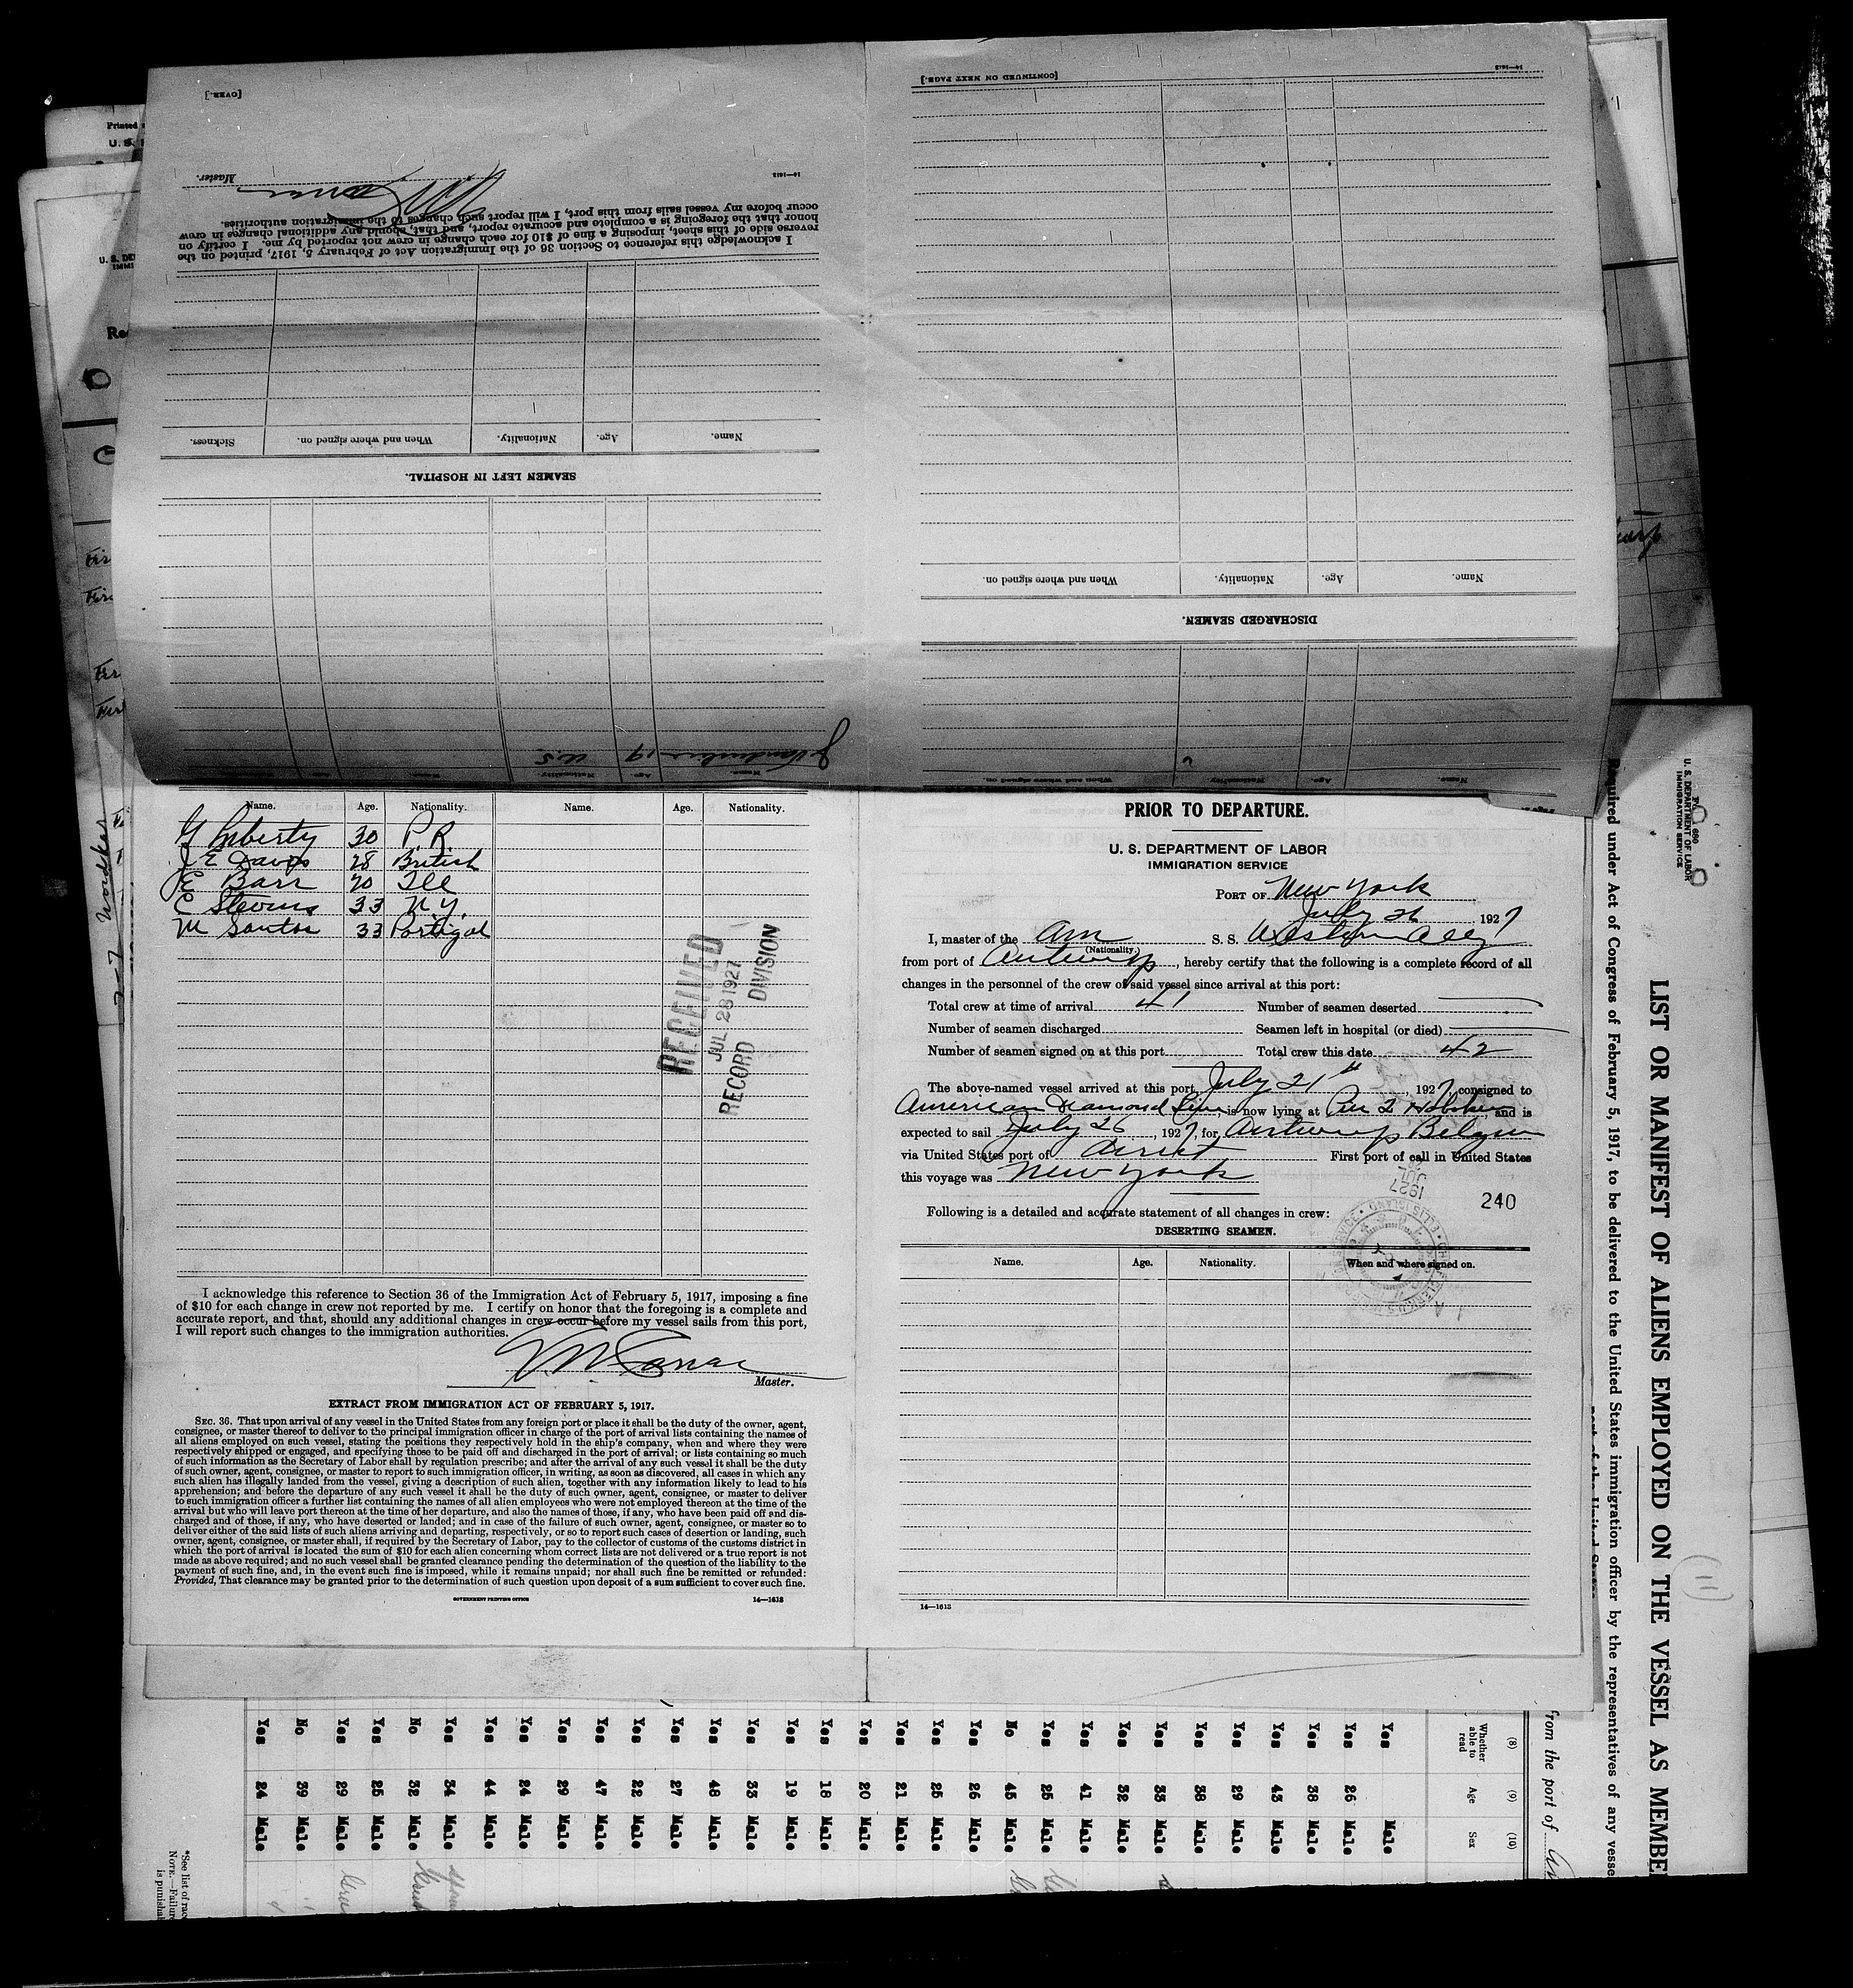 [OVER.]
14—1613
Master.
I acknowledge this reference to Section 36 of the Immigration Act of February 5, 1917, printed on the
reverse side of this sheet, imposing a fine of $10 for each change in crew not reported by me. I certify on
honor that the foregoing is a complete and accurate report, and that, should any additional changes in crew
occur before my vessel sails from this port, I will report such changes to the immigration authorities.
Name. Age. Nationality. When and where signed on. Sickness.
SEAMEN LEFT IN HOSPITAL.
19 U.S.
[CONTINUED ON NEXT PAGE.]
14—1613
Name. Age. Nationality. When and where signed on.
DISCHARGED SEAMEN.
Name. Age. Nationality. When and where signed on.
Name. Age. Nationality. Name. Age. Nationality.
G Luberty 30 P.R.
J E Davis 28 British
E Barr 20 Ill
E Stevens 33 N.Y.
M Santos 33 Portigal
RECEIVED
JUL 28 1927
RECORD DIVISION
I acknowledge this reference to Section 36 of the Immigration Act of February 5, 1917, imposing a fine
of $10 for each change in crew not reported by me. I certify on honor that the foregoing is a complete and
accurate report, and that, should any additional changes in crew occur before my vessel sails from this port,
I will report such changes to the immigration authorities.
Master.
EXTRACT FROM IMMIGRATION ACT OF FEBRUARY 5, 1917.
SEC. 36. That upon arrival of any vessel in the United States from any foreign port or place it shall be the duty of the owner, agent,
consignee, or master thereof to deliver to the principal immigration officer in charge of the port of arrival lists containing the names of
all aliens employed on such vessel, stating the positions they respectively hold in the ship's company, when and where they were
respectively shipped or engaged, and specifying those to be paid off and discharged in the port of arrival; or lists containing so much
of such information as the Secretary of Labor shall by regulation prescribe; and after the arrival of any such vessel it shall be the duty
of such owner, agent, consignee, or master to report to such immigration officer, in writing, as soon as discovered, all cases in which any
such alien has illegally landed from the vessel, giving a description of such alien, together with any information likely to lead to his
apprehension; and before the departure of any such vessel it shall be the duty of such owner, agent, consignee, or master to deliver
to such immigration officer a further list containing the names of all alien employees who were not employed thereon at the time of the
arrival but who will leave port thereon at the time of her departure, and also the names of those, if any, who have been paid off and dis-
charged and of those, if any, who have deserted or landed; and in case of the failure of such owner, agent, consignee, or master so to
deliver either of the said lists of such aliens arriving and departing, respectively, or so to report such cases of desertion or landing, such
owner, agent, consignee, or master shall, if required by the Secretary of Labor, pay to the collector of customs of the customs district in
which the port of arrival is located the sum of $10 for each alien concerning whom correct lists are not delivered or a true report is not
made as above required; and no such vessel shall be granted clearance pending the determination of the question of the liability to the
payment of such fine, and, in the event such fine is imposed, while it remains unpaid; nor shall such fine be remitted or refunded:
Provided, That clearance may be granted prior to the determination of such question upon deposit of a sum sufficient to cover such fine.
GOVERNMENT PRINTING OFFICE 14—1613
PRIOR TO DEPARTURE.
U. S. DEPARTMENT OF LABOR
IMMIGRATION SERVICE
PORT OF New York
July 26, 1927
I, master of the Am S. S. Western Ally
(Nationality.)
from port of Antwerp, hereby certify that the following is a complete record of all
changes in the personnel of the crew of said vessel since arrival at this port:
Total crew at time of arrival 41 Number of seamen deserted
Number of seamen discharged Seamen left in hospital (or died)
Number of seamen signed on at this port Total crew this date 42
The above-named vessel arrived at this port July 21st, 1927, consigned to
American Diamond Line, is now lying at Pier 2 Hoboken and is
expected to sail July 26, 1927, for Antwerp Belgium
via United States port of direct First port of call in United States
this voyage was New York
1927
240
Following is a detailed and accurate statement of all changes in crew:
DESERTING SEAMEN.
Name. Age. Nationality. When and where signed on.
14—1613
U. S. DEPARTMENT OF LABOR
IMMIGRATION SERVICE
LIST OR MANIFEST OF ALIENS EMPLOYED ON THE VESSEL AS MEMBE
Required under Act of Congress of February 5, 1917, to be delivered to the United States immigration officer by the representatives of any vesse
(11)
from the port of
(8) (9) (10)
Whether able to read Age Sex
Yes Male
Yes 26 Male
Yes 38 Male
Yes 43 Male
Yes 29 Male
Yes 38 Male
Yes 33 Male
Yes 32 Male
Yes 41 Male
Yes 25 Male
No 45 Male
Yes 26 Male
Yes 25 Male
Yes 21 Male
Yes 20 Male
Yes 18 Male
Yes 19 Male
Yes 33 Male
Yes 48 Male
Yes 27 Male
Yes 22 Male
Yes 47 Male
Yes 29 Male
Yes 24 Male
Yes 44 Male
Yes 34 Male
No 32 Male
Yes 25 Male
Yes 29 Male
No 39 Male
Yes 24 Male
*See list of rac
NOTE.—Failur
is punishal